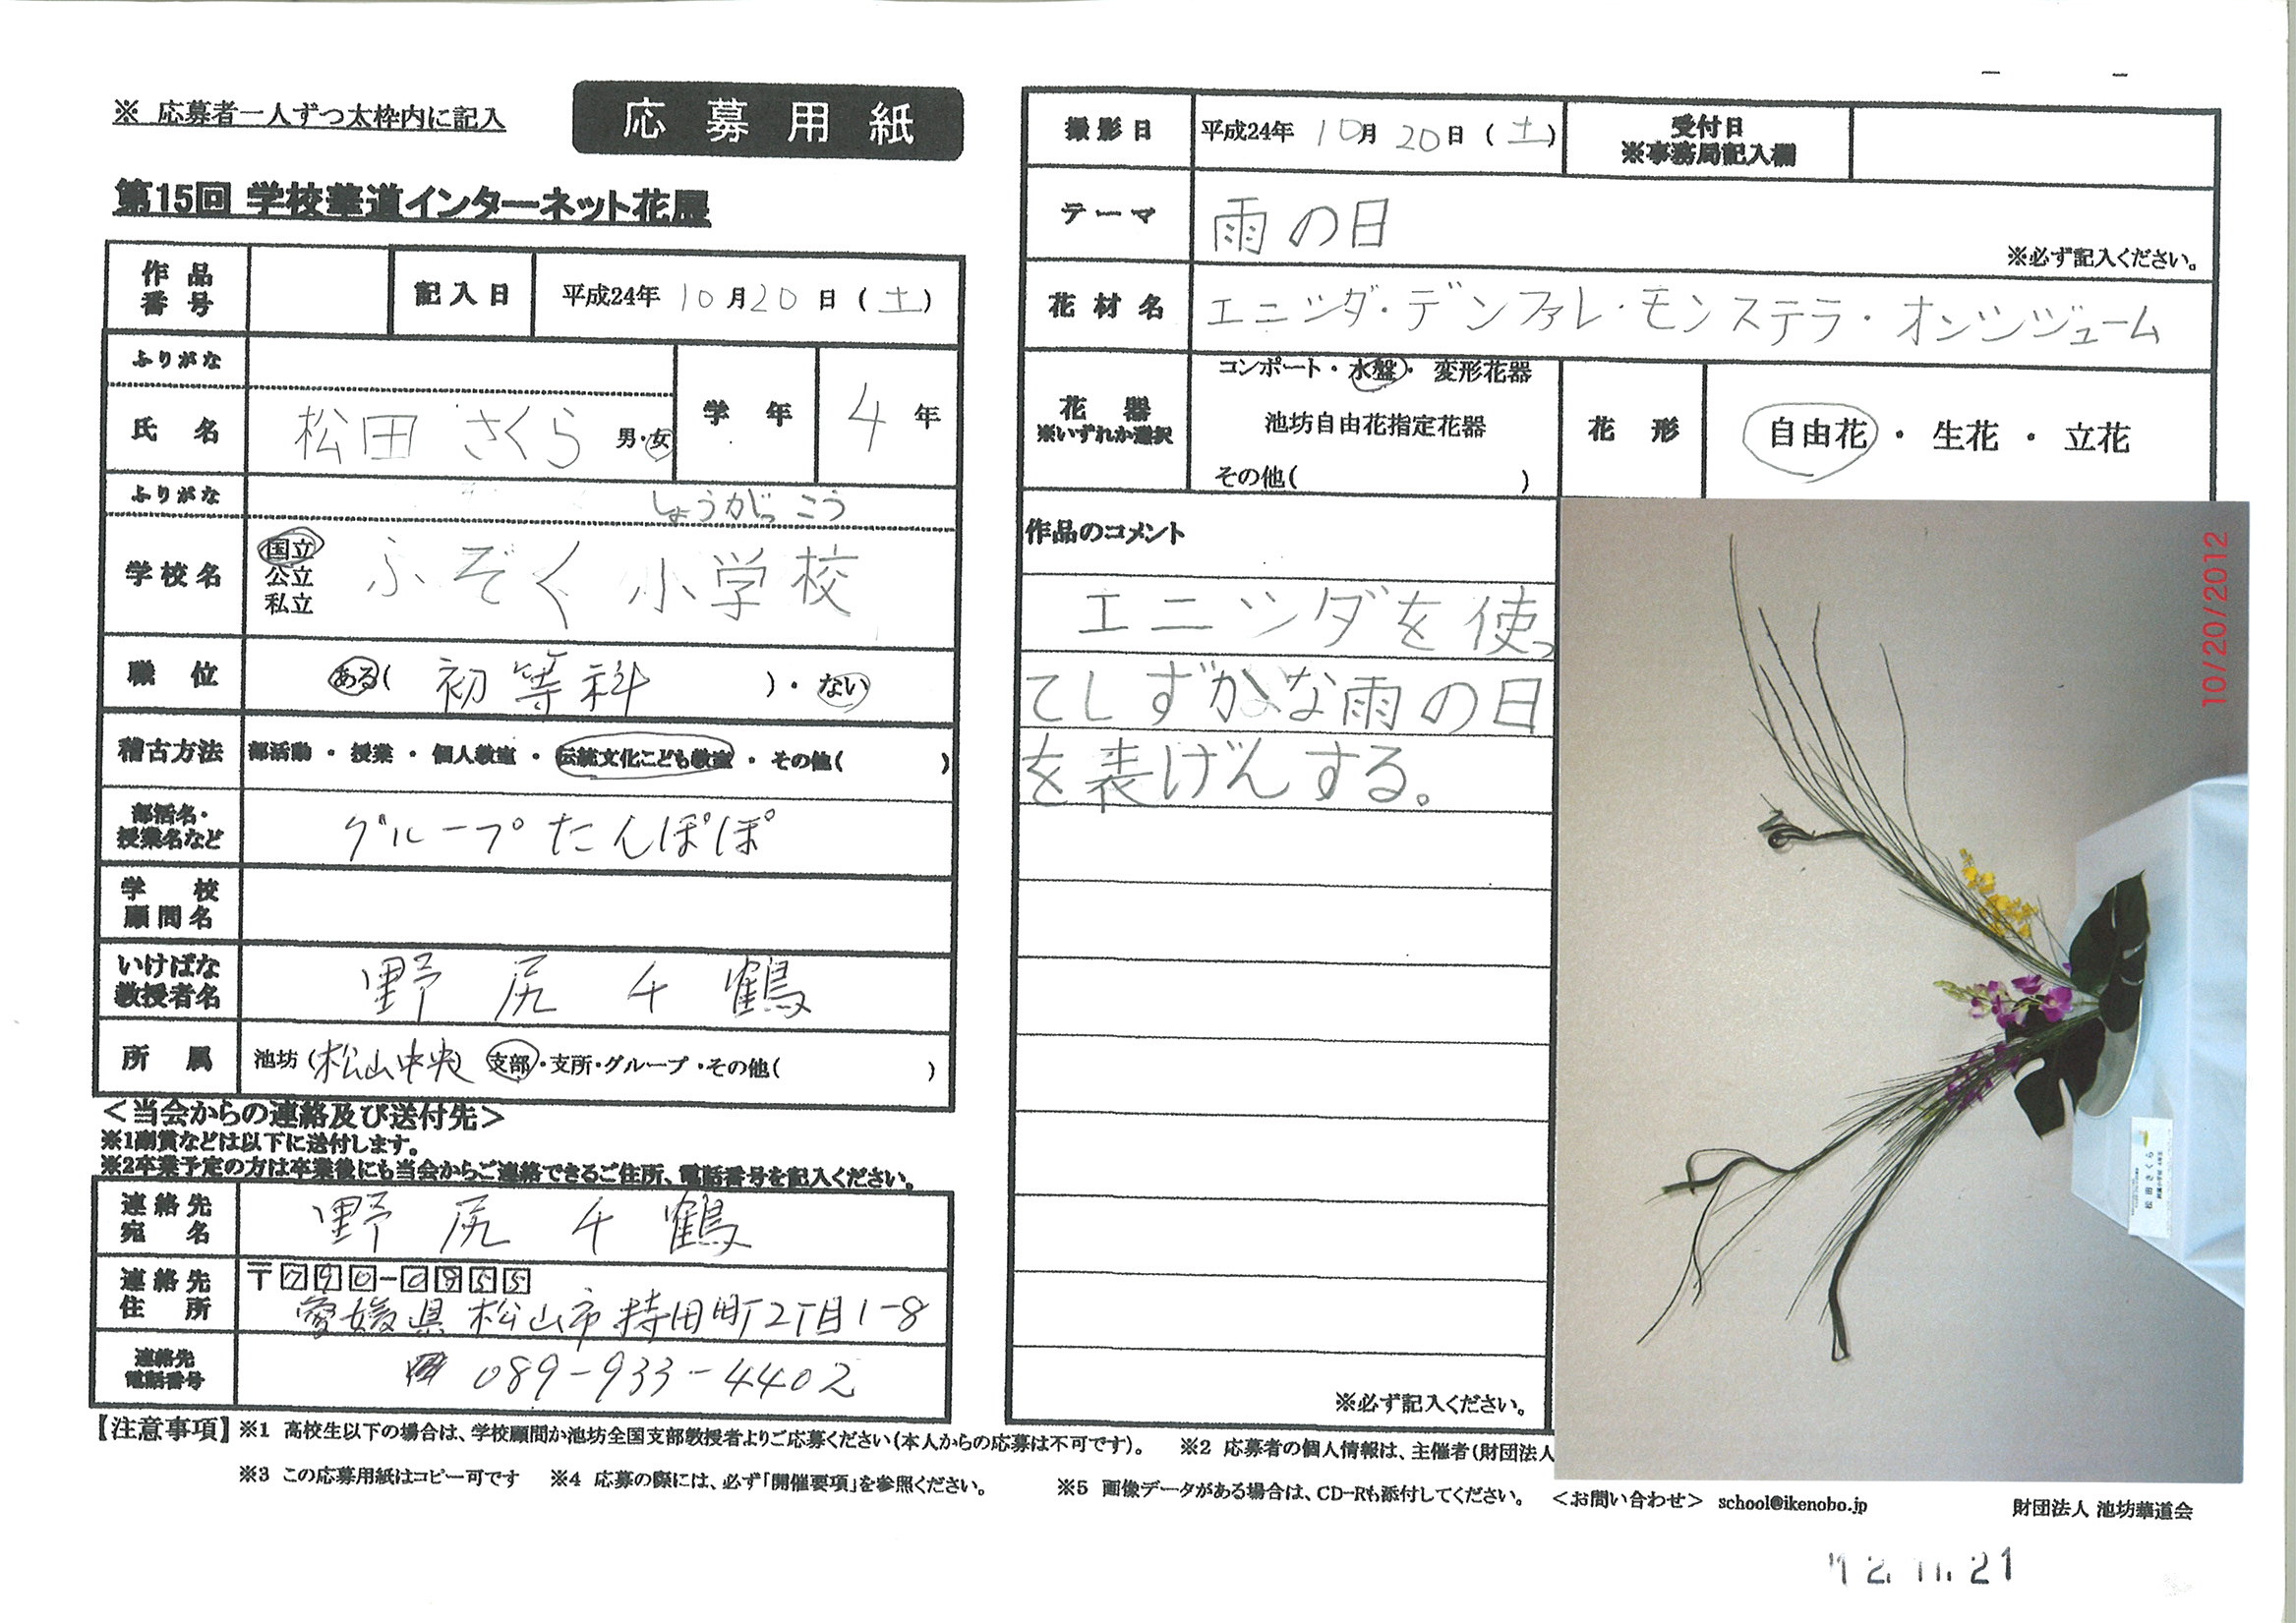 ※ 応募者一人ずつ太枠内に記入
応募用紙
第15回 学校華道インターネット花展
作品番号
記入日 平成24年 10月20日（土）
ふりがな
氏名 松田 さくら 男・女
学年 4年
ふりがな しょうがっこう
学校名 国立 公立 私立 ふぞく小学校
職位 ある（ 初等科 ）・ない
稽古方法 部活動・授業・個人教室・伝統文化こども教室・その他（ ）
部活名・授業名など グループたんぽぽ
学校顧問名
いけばな教授者名 野尻千鶴
所属 池坊（松山中央）支部・支所・グループ・その他（ ）
＜当会からの連絡及び送付先＞
※1副賞などは以下に送付します。
※2卒業予定の方は卒業後にも当会からご連絡できるご住所、電話番号を記入ください。
連絡先宛名 野尻千鶴
連絡先住所 〒790-0855
愛媛県松山市持田町2丁目1-8
連絡先電話番号 089-933-4402
撮影日 平成24年 10月20日（土）
受付日
※事務局記入欄
テーマ 雨の日
※必ず記入ください。
花材名 エニシダ・デンファレ・モンステラ・オンシジューム
花器
※いずれか選択
コンポート・水盤・変形花器
池坊自由花指定花器
その他（ ）
花形 自由花・生花・立花
作品のコメント
エニシダを使っ
てしずかな雨の日
を表げんする。
※必ず記入ください。
10/20/2012
松田さくら
【注意事項】※1 高校生以下の場合は、学校顧問か池坊全国支部教授者よりご応募ください（本人からの応募は不可です）。 ※2 応募者の個人情報は、主催者（財団法人
※3 この応募用紙はコピー可です ※4 応募の際には、必ず「開催要項」を参照ください。 ※5 画像データがある場合は、CD-Rも添付してください。 ＜お問い合わせ＞ school@ikenobo.jp 財団法人 池坊華道会
'12. 11. 21